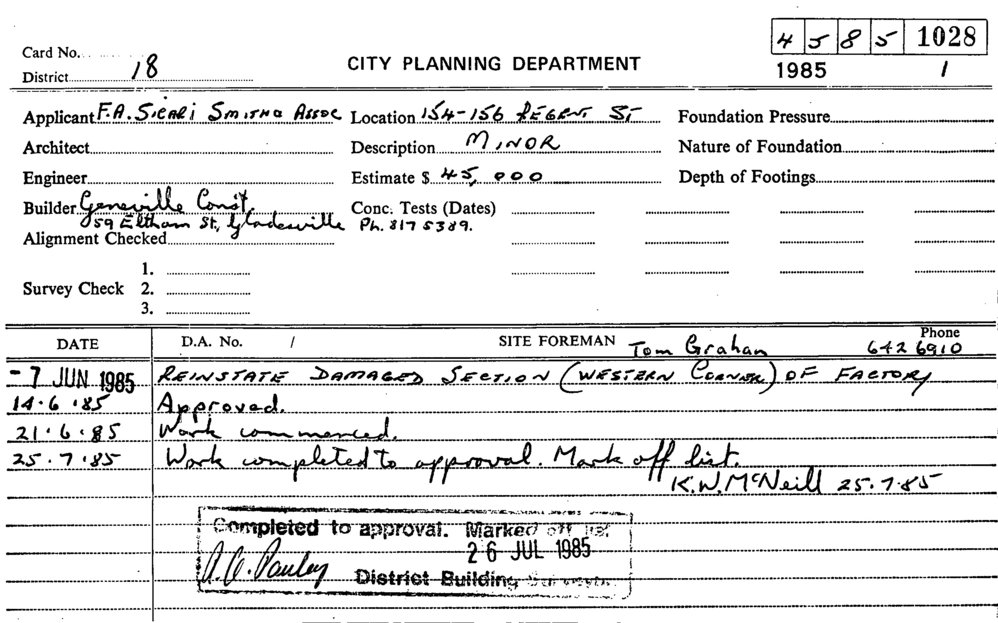 4 5 8 5 1028
Card No.
District 18
CITY PLANNING DEPARTMENT
1985 1
Applicant F.A. Sicari Smith Assoc Location 154-156 REGENT ST Foundation Pressure
Architect Description MINOR Nature of Foundation
Engineer Estimate $ 45,000 Depth of Footings
Builder Geneville Const. Conc. Tests (Dates)
59 Eltham St., Gladesville Ph. 817 5389.
Alignment Checked
1.
Survey Check 2.
3.
DATE D.A. No. / SITE FOREMAN Tom Graham Phone 642 6910
-7 JUN 1985 REINSTATE DAMAGED SECTION (WESTERN CORNER) OF FACTORY
14.6.85 Approved.
21.6.85 Work commenced.
25.7.85 Work completed to approval. Mark off list.
K.W. McNeill 25.7.85
Completed to approval. Marked off list.
26 JUL 1985
District Building Surveyor.